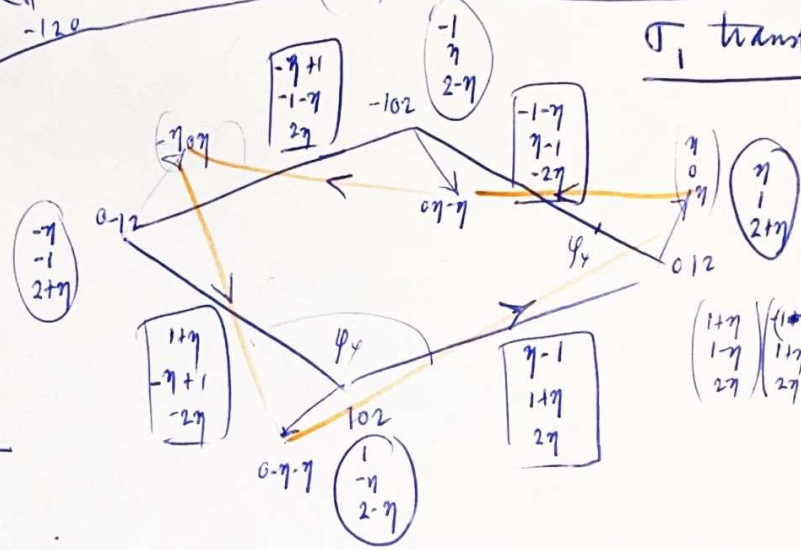 -120
σ₁ trans
-1
η
2-η
-η+1
-1-η
2η
-102
-1-η
η-1
-2η
-η0η
η
0
η
η
1
2+η
0-12
0η-η
φ₄
012
-η
-1
2+η
1+η
-η+1
-2η
φ₄
η-1
1+η
2η
1+η
1-η
2η
1+η
2η
102
0-η-η
1
-η
2-η